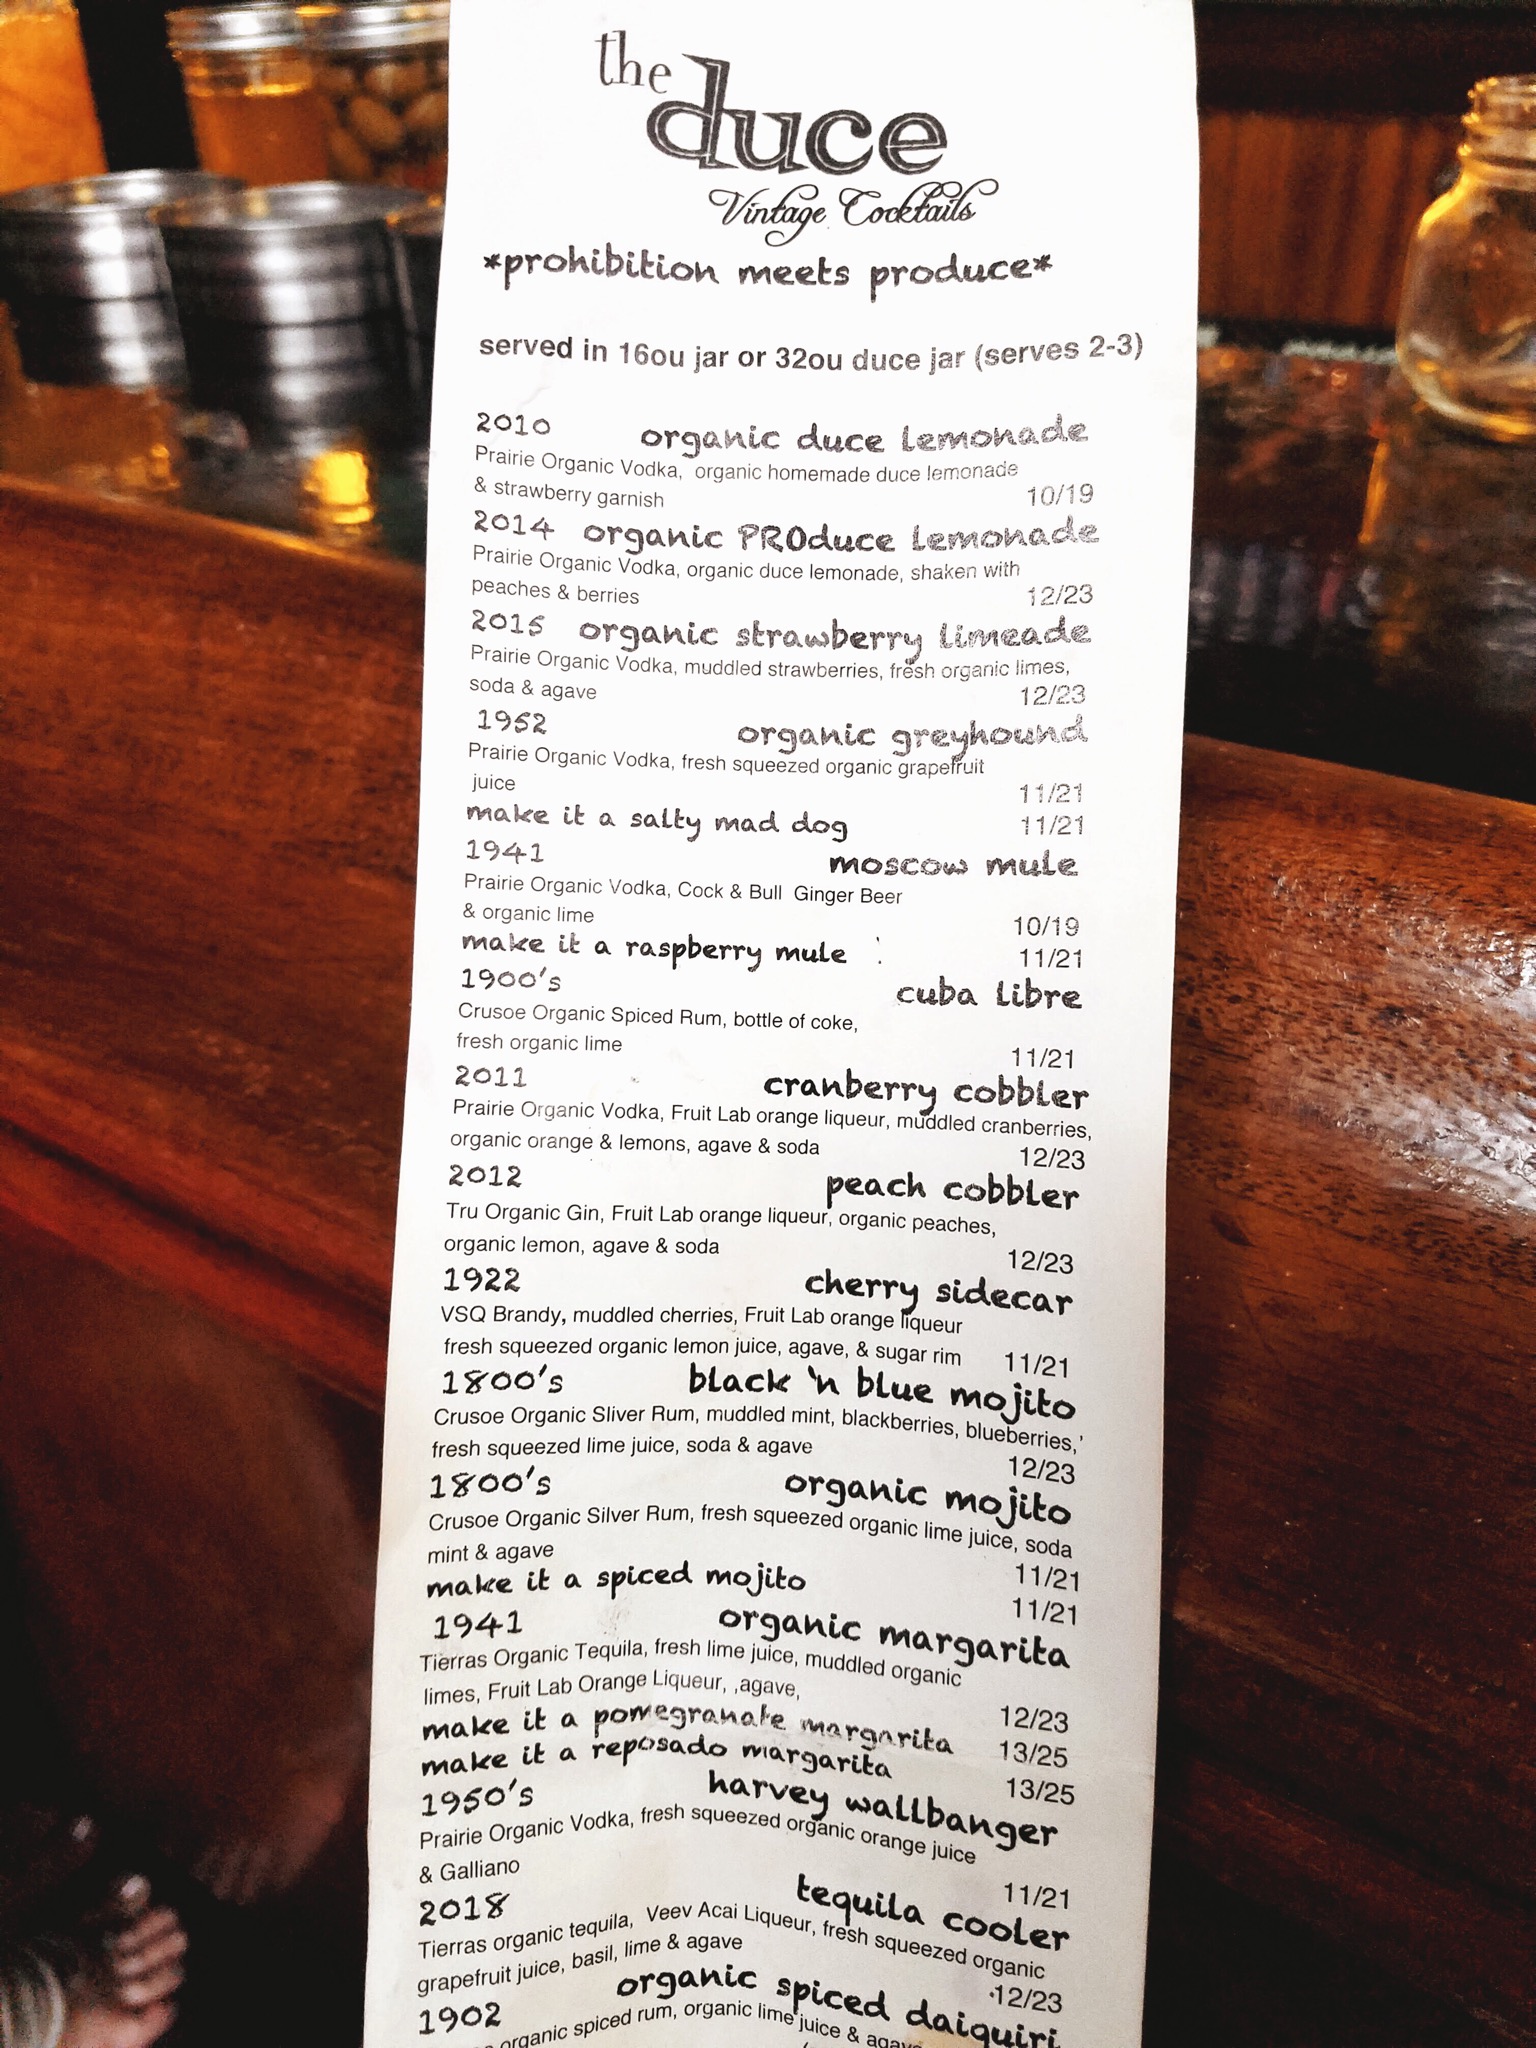 the
duce
Vintage Cocktails
*prohibition meets produce*
served in 16ou jar or 32ou duce jar (serves 2-3)
2010 organic duce lemonade
Prairie Organic Vodka, organic homemade duce lemonade
& strawberry garnish 10/19
2014 organic PROduce lemonade
Prairie Organic Vodka, organic duce lemonade, shaken with
peaches & berries 12/23
2015 organic strawberry limeade
Prairie Organic Vodka, muddled strawberries, fresh organic limes,
soda & agave 12/23
1952 organic greyhound
Prairie Organic Vodka, fresh squeezed organic grapefruit
juice 11/21
make it a salty mad dog 11/21
1941 moscow mule
Prairie Organic Vodka, Cock & Bull Ginger Beer
& organic lime 10/19
make it a raspberry mule 11/21
1900's cuba libre
Crusoe Organic Spiced Rum, bottle of coke,
fresh organic lime 11/21
2011 cranberry cobbler
Prairie Organic Vodka, Fruit Lab orange liqueur, muddled cranberries,
organic orange & lemons, agave & soda 12/23
2012 peach cobbler
Tru Organic Gin, Fruit Lab orange liqueur, organic peaches,
organic lemon, agave & soda 12/23
1922 cherry sidecar
VSQ Brandy, muddled cherries, Fruit Lab orange liqueur
fresh squeezed organic lemon juice, agave, & sugar rim 11/21
1800's black 'n blue mojito
Crusoe Organic Sliver Rum, muddled mint, blackberries, blueberries,'
fresh squeezed lime juice, soda & agave 12/23
1800's organic mojito
Crusoe Organic Silver Rum, fresh squeezed organic lime juice, soda
mint & agave 11/21
make it a spiced mojito 11/21
1941 organic margarita
Tierras Organic Tequila, fresh lime juice, muddled organic
limes, Fruit Lab Orange Liqueur, ,agave, 12/23
make it a pomegranate margarita 13/25
make it a reposado margarita 13/25
1950's harvey wallbanger
Prairie Organic Vodka, fresh squeezed organic orange juice
& Galliano 11/21
2018 tequila cooler
Tierras organic tequila, Veev Acai Liqueur, fresh squeezed organic
grapefruit juice, basil, lime & agave 12/23
1902 organic spiced daiquiri
organic spiced rum, organic lime juice & agave